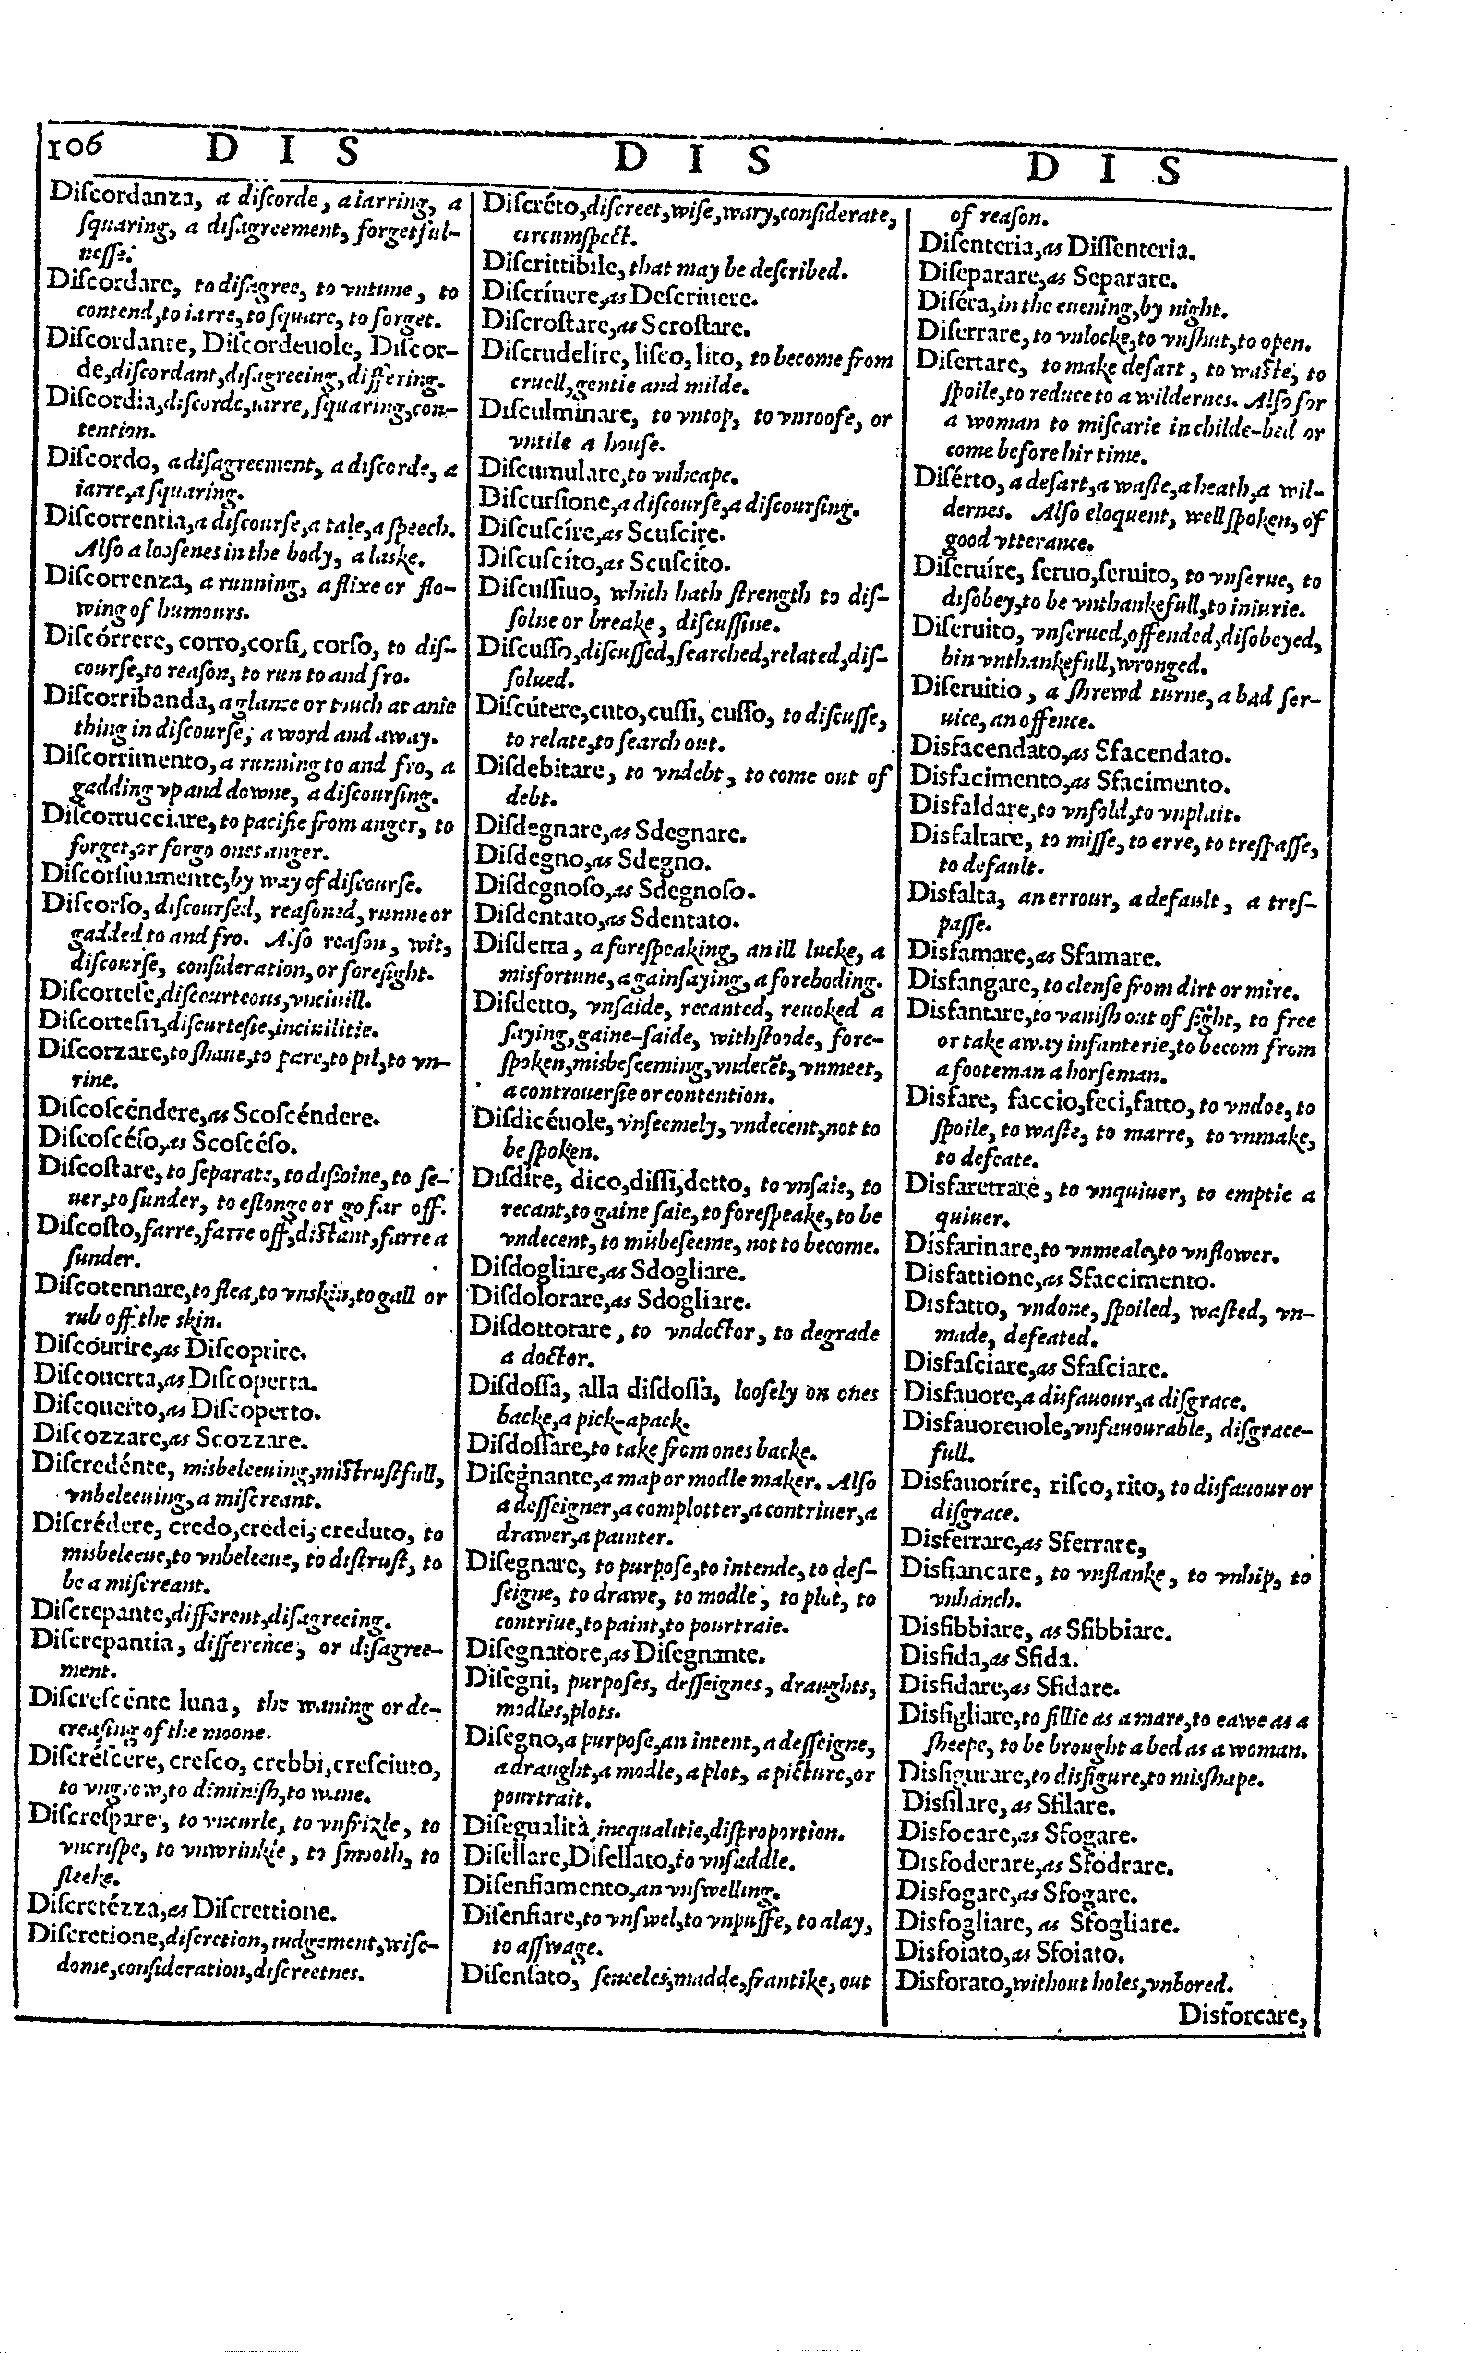 106 D I S D I S D I S
Diſcordanza, a diſcorde, a iarring, a
ſquaring, a diſagreement, forgetful-
neſſe.
Diſcordare, to diſagree, to vntune, to
contend, to iarre, to ſquare, to forget.
Diſcordante, Diſcordeuole, Diſcor-
de, diſcordant, diſagreeing, differing.
Diſcordia, diſcorde, iarre, ſquaring, con-
tention.
Diſcordo, a diſagreement, a diſcorde, a
iarre, a ſquaring.
Diſcorrentia, a diſcourſe, a tale, a ſpeech.
Alſo a looſenes in the body, a laske.
Diſcorrenza, a running, a flixe or flo-
wing of humours.
Diſcórrere, corro, corſi, corſo, to diſ-
courſe, to reaſon, to run to and fro.
Diſcorribanda, a glanze or touch at anie
thing in diſcourſe; a word and away.
Diſcorrimento, a running to and fro, a
gadding vp and downe, a diſcourſing.
Diſcorrucciare, to pacifie from anger, to
forget, or forgo ones anger.
Diſcorſiuamente, by way of diſcourſe.
Diſcorſo, diſcourſed, reaſoned, runne or
gadded to and fro. Alſo reaſon, wit,
diſcourſe, conſideration, or foreſight.
Diſcorteſe, diſcourteous, vnciuill.
Diſcorteſia, diſcurteſie, inciuilitie.
Diſcorzare, to ſhaue, to pare, to pil, to vn-
rine.
Diſcoſcéndere, as Scoſcéndere.
Diſcoſcéſo, as Scoſcéſo.
Diſcoſtare, to ſeparate, to diſioine, to ſe-
uer, to ſunder, to eſlonge or go far off.
Diſcoſto, farre, farre off, diſtant, farre a
ſunder.
Diſcotennare, to flea, to vnskin, to gall or
rub off the skin.
Diſcourire, as Diſcoprire.
Diſcouerta, as Diſcoperta.
Diſcouerto, as Diſcoperto.
Diſcozzare, as Scozzare.
Diſcredénte, misbeleeuing, miſtruſtfull,
vnbeleeuing, a miſcreant.
Diſcrédere, credo, credei, creduto, to
misbeleeue, to vnbeleeue, to diſtruſt, to
be a miſcreant.
Diſcrepante, different, diſagreeing.
Diſcrepantia, difference, or diſagree-
ment.
Diſcreſcénte luna, the waning or de-
creaſing of the moone.
Diſcréſcere, creſco, crebbi, creſciuto,
to vngrow, to diminiſh, to wane.
Diſcreſpare, to vncurle, to vnfrizle, to
vncriſpe, to vnwrinkle, to ſmooth, to
ſleeke.
Diſcretézza, as Diſcrettione.
Diſcretione, diſcretion, iudgement, wiſe-
dome, conſideration, diſcreetnes.
Diſcréto, diſcreet, wiſe, wary, conſiderate,
circumſpect.
Diſcrittibile, that may be deſcribed.
Diſcríuere, as Deſcriuere.
Diſcroſtare, as Scroſtare.
Diſcrudelire, liſco, lito, to become from
cruell, gentle and milde.
Diſculminare, to vntop, to vnroofe, or
vntile a houſe.
Diſcumulare, to vnheape.
Diſcurſione, a diſcourſe, a diſcourſing.
Diſcuſcíre, as Scuſcire.
Diſcuſcíto, as Scuſcito.
Diſcuſſiuo, which hath ſtrength to diſ-
ſolue or breake, diſcuſſiue.
Diſcuſſo, diſcuſſed, ſearched, related, diſ-
ſolued.
Diſcútere, cuto, cuſſi, cuſſo, to diſcuſſe,
to relate, to ſearch out.
Diſdebitare, to vndebt, to come out of
debt.
Diſdegnare, as Sdegnare.
Diſdegno, as Sdegno.
Diſdegnoſo, as Sdegnoſo.
Diſdentato, as Sdentato.
Diſdetta, a foreſpeaking, an ill lucke, a
misfortune, a gainſaying, a foreboding.
Diſdetto, vnſaide, recanted, reuoked a
ſaying, gaine-ſaide, withſtoode, fore-
ſpoken, misbeſeeming, vndecēt, vnmeet,
a controuerſie or contention.
Diſdicéuole, vnſeemely, vndecent, not to
be ſpoken.
Diſdíre, dico, diſſi, detto, to vnſaie, to
recant, to gaine ſaie, to foreſpeake, to be
vndecent, to misbeſeeme, not to become.
Diſdogliare, as Sdogliare.
Diſdolorare, as Sdogliare.
Diſdottorare, to vndoctor, to degrade
a doctor.
Diſdoſſa, alla diſdoſſa, looſely on ones
backe, a pick-apack.
Diſdoſſare, to take from ones backe.
Diſegnante, a map or modle maker. Alſo
a deſſeigner, a complotter, a contriuer, a
drawer, a painter.
Diſegnare, to purpoſe, to intende, to deſ-
ſeigne, to drawe, to modle, to plot, to
contriue, to paint, to pourtraie.
Diſegnatore, as Diſegnante.
Diſegni, purpoſes, deſſeignes, draughts,
modles, plots.
Diſegno, a purpoſe, an intent, a deſſeigne,
a draught, a modle, a plot, a picture, or
pourtrait.
Diſegualità, inequalitie, diſproportion.
Diſellare, Diſellato, to vnſaddle.
Diſenfiamento, an vnſwelling.
Diſenfiare, to vnſwel, to vnpuffe, to alay,
to aſſwage.
Diſenſato, ſenceles, madde, frantike, out
of reaſon.
Diſenteria, as Diſſenteria.
Diſeparare, as Separare.
Diſéra, in the euening, by night.
Diſerrare, to vnlocke, to vnſhut, to open.
Diſertare, to make deſart, to waſte, to
ſpoile, to reduce to a wildernes. Alſo for
a woman to miſcarie in childe-bed or
come before hir time.
Diſérto, a deſart, a waſte, a heath, a wil-
dernes. Alſo eloquent, well ſpoken, of
good vtterance.
Diſeruíre, ſeruo, ſeruito, to vnſerue, to
diſobey, to be vnthankefull, to iniurie.
Diſeruito, vnſerued, offended, diſobeyed,
bin vnthankefull, wronged.
Diſeruitio, a ſhrewd turne, a bad ſer-
uice, an offence.
Disfacendato, as Sfacendato.
Disfacimento, as Sfacimento.
Disfaldare, to vnfold, to vnplait.
Disfaltare, to miſſe, to erre, to treſpaſſe,
to default.
Disfalta, an errour, a default, a treſ-
paſſe.
Disfamare, as Sfamare.
Disfangare, to clenſe from dirt or mire.
Disfantare, to vaniſh out of ſight, to free
or take away infanterie, to becom from
a footeman a horſeman.
Disfare, faccio, feci, fatto, to vndoe, to
ſpoile, to waſte, to marre, to vnmake,
to defeate.
Disfaretrare, to vnquiuer, to emptie a
quiuer.
Disfarinare, to vnmeale, to vnflower.
Disfattione, as Sfaccimento.
Disfatto, vndone, ſpoiled, waſted, vn-
made, defeated.
Disfaſciare, as Sfaſciare.
Disfauore, a disfauour, a diſgrace.
Disfauoreuole, vnfauourable, diſgrace-
full.
Disfauoríre, riſco, rito, to disfauour or
diſgrace.
Disferrare, as Sferrare,
Disfiancare, to vnflanke, to vnhip, to
vnhanch.
Disfibbiare, as Sfibbiare.
Disfida, as Sfida.
Disfidare, as Sfidare.
Disfigliare, to fillie as a mare, to eawe as a
ſheepe, to be brought a bed as a woman.
Disfigurare, to disfigure, to misſhape.
Disfilare, as Sfilare.
Disfocare, as Sfogare.
Disfoderare, as Sfodrare.
Disfogare, as Sfogare.
Disfogliare, as Sfogliare.
Disfoiato, as Sfoiato.
Disforato, without holes, vnbored.
Disforcare,